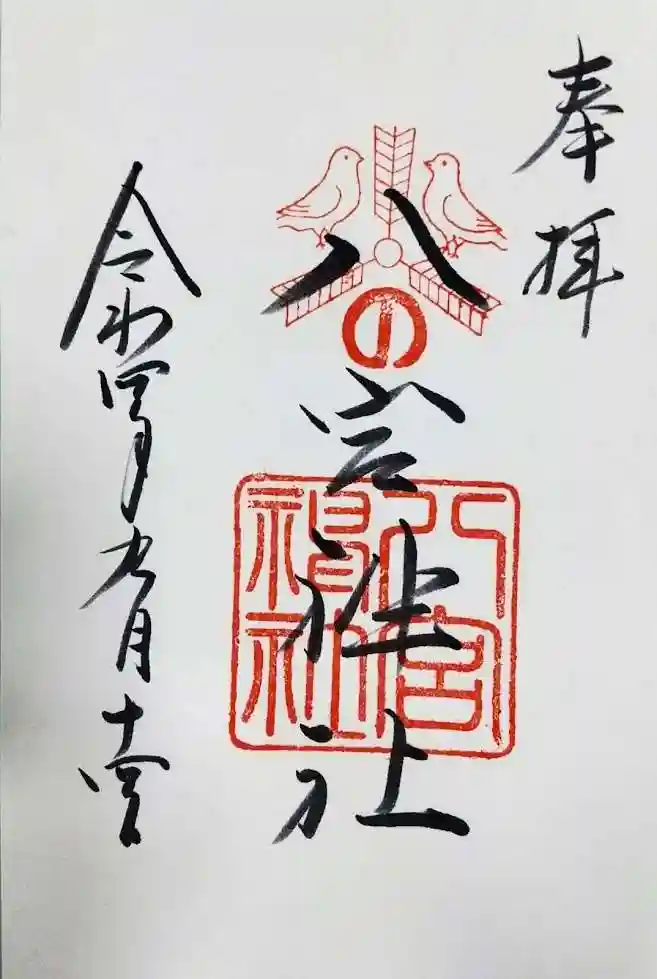 奉拝
八の宮神社
八宮
神社
令和四年九月十四日